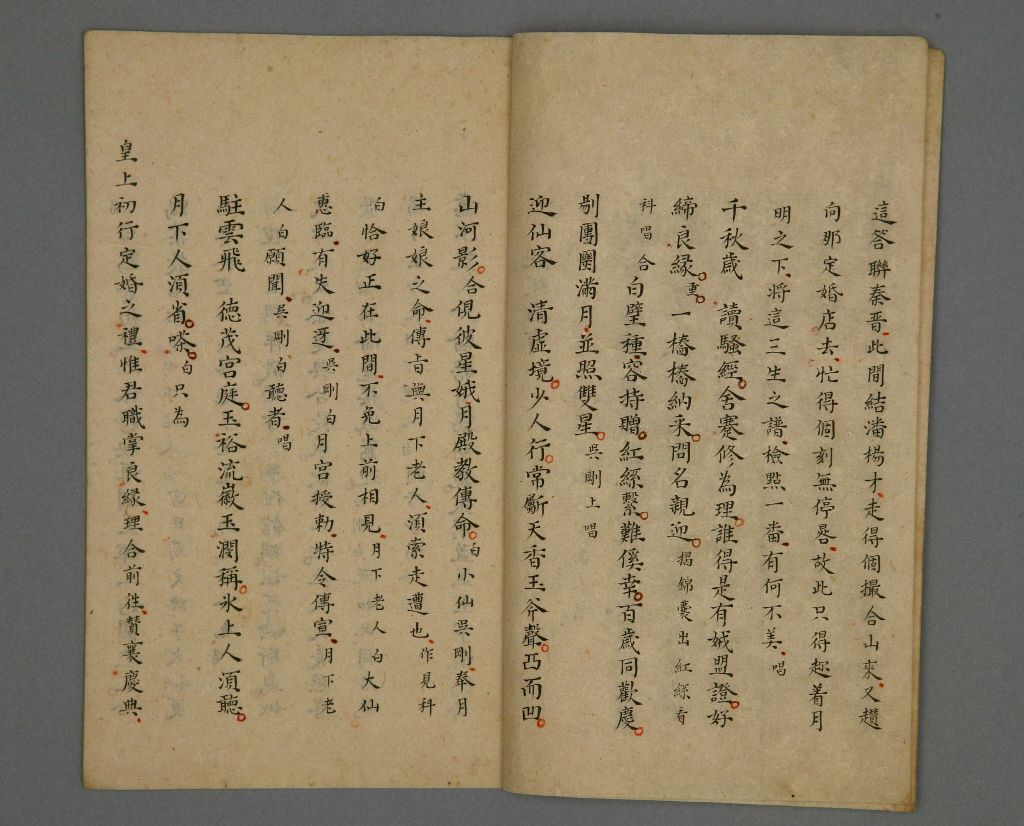 這答聯秦晋此間結潘楊才走得個撮合山來又趲
向那定婚店去忙得個刻無停晷故此只得趂着月
明之下將這三生之譜檢點一番有何不美唱
千秋歲 讀騷經舍蹇修為理誰得是有娀盟證好
締良緣重一樁樁納采問名親迎揭錦囊出紅絲看
科唱合白璧種容持贈紅絲繫難傒幸百歲同歡慶
剔團圞滿月並照雙星吳剛上唱
迎仙客 清虛境少人行常斸天香玉斧聲凸而凹
山河影合俔彼星娥月殿教傳命白小仙吳剛奉月
主娘娘之命傳旨與月下老人須索走遭也作見科
白恰好正在此間不免上前相見月下老人白大仙
惠臨有失迎迓吳剛白月宮授勅特令傳宣月下老
人白願聞吳剛白聽者唱
駐雲飛 德茂宮庭玉裕流徽玉潤稱氷上人須聽
月下人須省嗏白只為
皇上初行定婚之禮惟君職掌良緣理合前徃贊襄慶典